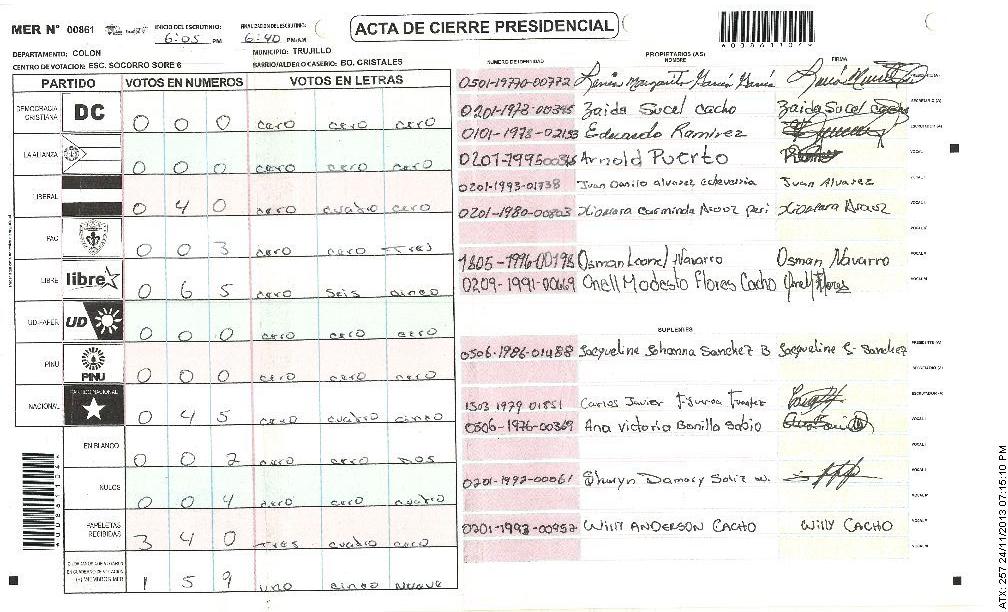 MER N° 00861
INICIO DEL ESCRUTINIO: 6:05 PM
FINALIZACION DEL ESCRUTINIO: 6:40 PM/AM
ACTA DE CIERRE PRESIDENCIAL
DEPARTAMENTO: COLON
MUNICIPIO: TRUJILLO
CENTRO DE VOTACION: ESC. SOCORRO SORE 6
BARRIO/ALDEA O CASERIO: BO. CRISTALES
PARTIDO VOTOS EN NUMEROS VOTOS EN LETRAS
DEMOCRACIA CRISTIANA DC 0 0 0 cero cero cero
LA ALIANZA 0 0 0 cero cero cero
LIBERAL 0 4 0 cero cuatro cero
PAC 0 0 3 cero cero Tres
LIBRE libre 0 6 5 cero seis cinco
UD-FAPER UD 0 0 0 cero cero cero
PINU PINU 0 0 0 cero cero cero
NACIONAL PARTIDO NACIONAL 0 4 5 cero cuatro cinco
EN BLANCO 0 0 2 cero cero Dos
NULOS 0 0 4 cero cero cuatro
PAPELETAS RECIBIDAS 3 4 0 Tres cuatro cero
(+) MIEMBROS MER 1 5 9 uno cinco nueve
PROPIETARIOS (AS)
NUMERO DE IDENTIDAD NOMBRE FIRMA
0501-19770-00772
0201-1973-00395 Zaida Sucel Cacho Zaida Sucel Cacho
0101-1978-02153 Eduardo Ramirez
Arnold Puerto
0201-1993-01738 Juan Danilo alvarez echeverria Juan Alvarez
0201-1980-00803 Xiomara Carminda Arooz Xiomara Arooz
1805-1996-00198 Osman Leonel Navarro Osman Navarro
0209-1991-00669 Onell Modesto Flores Cacho Onell Flores
SUPLENTES
0506-1986-01488 Jacqueline Johanna Sanchez B Jacqueline J. Sanchez
1503 1979 01851 Carlos Javier Figueroa
0506-1976-00369 Ana victoria Bonilla Sabio
0201-1992-00061 Sharyn Damary Soliz w.
0201-1993-00952 WILLY ANDERSON CACHO WILLY CACHO
ATX: 257 24/11/2013 07:15:10 PM